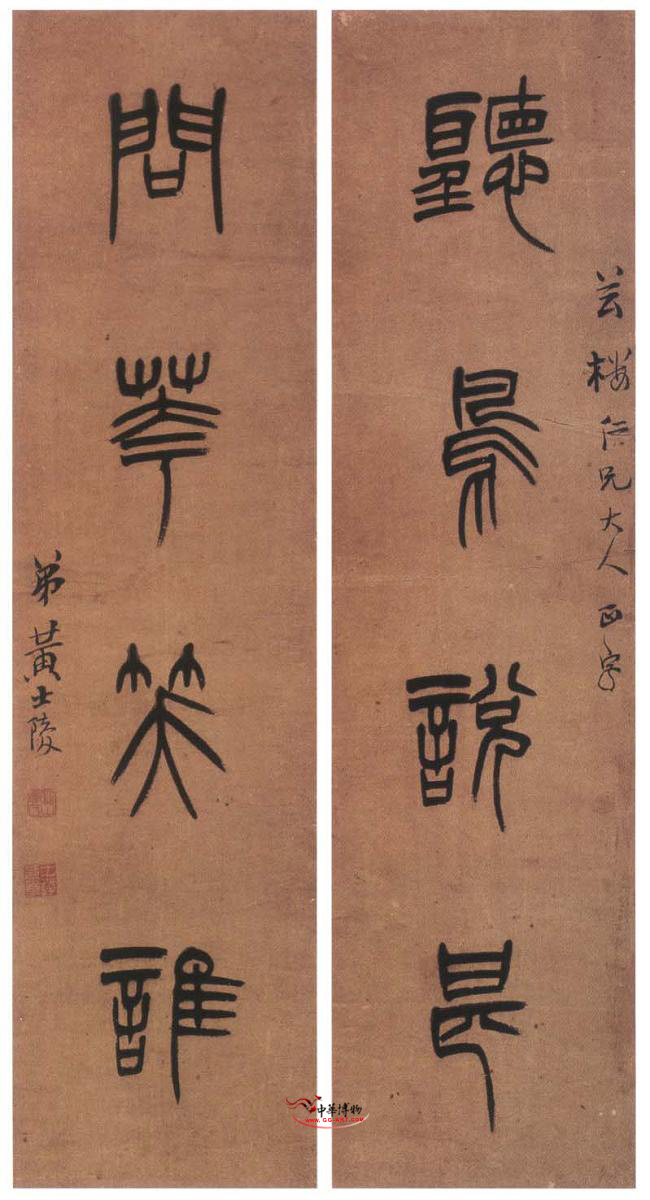 芸樓仁兄大人正字
聽鳥說甚
問華笑誰
弟黃士陵
中華博物
WWW.GG-ART.COM